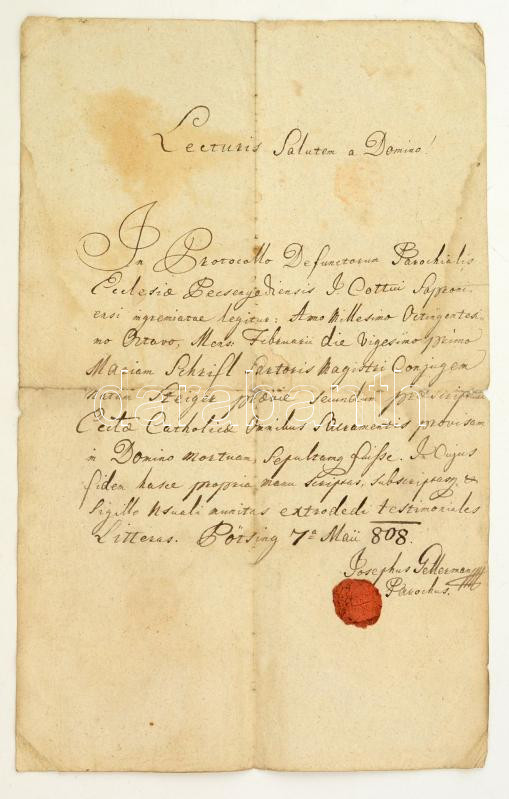 Lecturis Salutem a Domino!
In Protocollo Defunctorum Parochialis
Ecclesiæ Pecsenyediensis I. Cottui Soproni-
ensi ingremiatae legitur: Anno Millesimo Octingentesi-
mo Octavo, Mens: Februarii die Vigesimo primo
Mariam Schrifl Sartoris Magistri Conjugem
natam Steiger prævie secundum præscriptum
Ecclæ Catholicæ Omnibus Sacramentis provisam
in Domino mortuam, Sepultamq fuisse. In Cujus
fidem hasce propria manu scriptas, subscriptasq, &
Sigillo Usuali munitas extradedi testimoniales
Litteras. Pötsing 7ª Maii 808.
Josephus Gellerman
Parochus.
darabanth